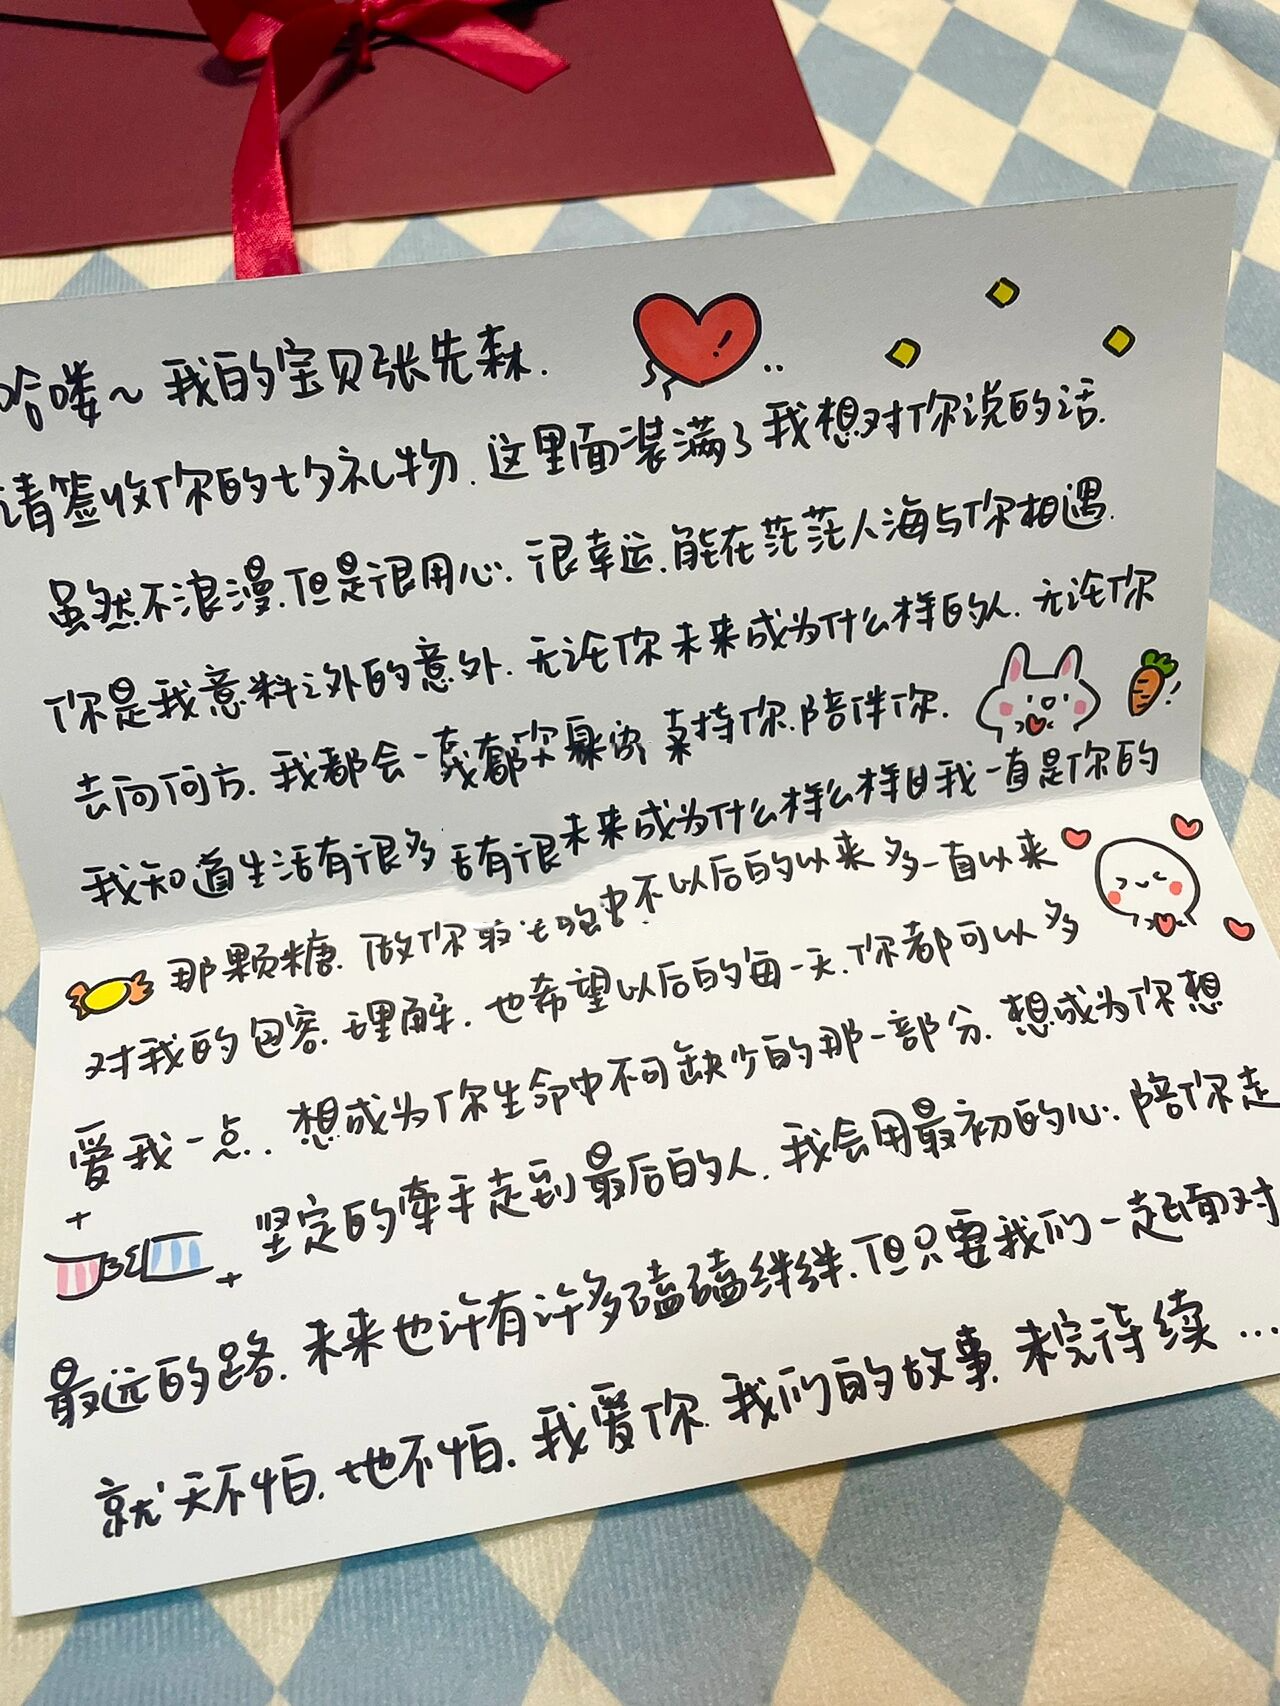 哈喽~我的宝贝张先森.
请签收你的七夕礼物.这里面装满了我想对你说的话.
虽然不浪漫.但是很用心.很幸运.能在茫茫人海与你相遇.
你是我意料之外的意外.无论你未来成为什么样的人.无论你
去向何方.我都会一 持你.陪伴你.
我知道生活有很多 有很未来成为什么样么样 我一直是你的
那颗糖.做你 不以后的以来多一直以来
对我的包容.理解.也希望以后的每一天.你都可以多
爱我一点..想成为你生命中不可缺少的那一部分.想成为你想
坚定的牵手走到最后的人.我会用最初的心.陪你走
最远的路.未来也许有许多磕磕绊绊.但只要我们一起面对
就天不怕.地不怕.我爱你.我们的故事.未完待续...